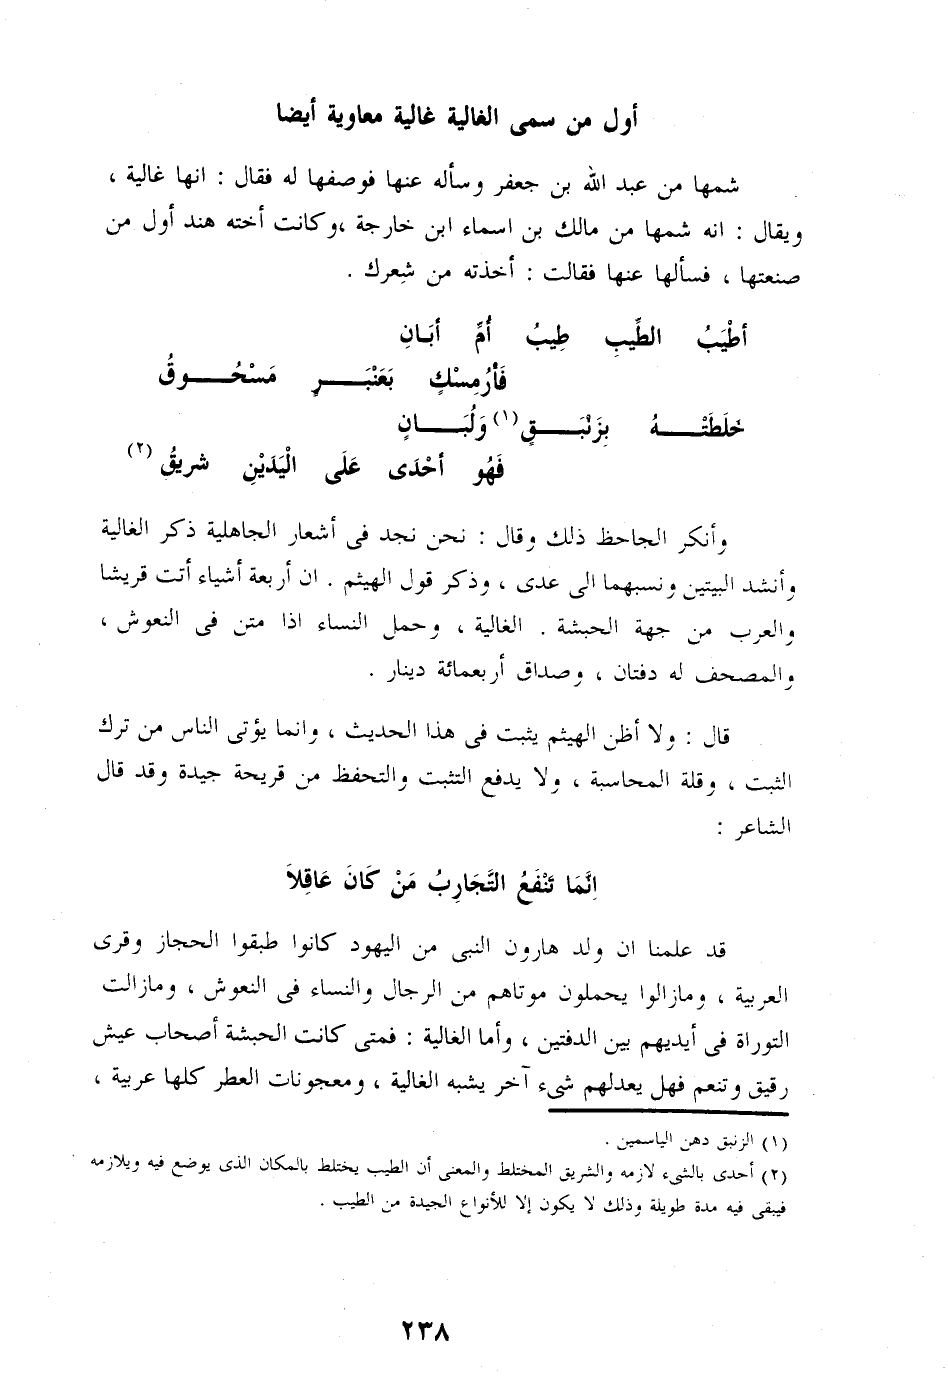 أول من سمى الغالية غالية معاوية أيضا
شمها من عبد الله بن جعفر وسأله عنها فوصفها له فقال : انها غالية ،
ويقال : انه شمها من مالك بن اسماء ابن خارجة ،وكانت أخته هند أول من
صنعتها ، فسألها عنها فقالت : أخذته من شِعرك .
أطْيَبُ الطِّيبِ طِيبُ أُمِّ أبَانِ
فَأرُمِسْكٍ بَعَنْبَرٍ مَسْحُوقُ
خَلَطَتْهُ بِزَنْبَقٍ (١) وَلُبَانٍ
فَهُو أحْدَى عَلَى الْيَدَيْنِ شريقُ (٢)
وأنكر الجاحظ ذلك وقال : نحن نجد فى أشعار الجاهلية ذكر الغالية
وأنشد البيتين ونسبهما الى عدى ، وذكر قول الهيثم . ان أربعة أشياء أتت قريشا
والعرب من جهة الحبشة . الغالية ، وحمل النساء اذا متن فى النعوش ،
والمصحف له دفتان ، وصداق أربعمائة دينار .
قال : ولا أظن الهيثم يثبت فى هذا الحديث ، وانما يؤتى الناس من ترك
الثبت ، وقلة المحاسبة ، ولا يدفع التثبت والتحفظ من قريحة جيدة وقد قال
الشاعر :
اِنَّمَا تَنْفَعُ التَّجَارِبُ مَنْ كَانَ عَاقِلاَ
قد علمنا ان ولد هارون النبى من اليهود كانوا طبقوا الحجاز وقرى
العربية ، ومازالوا يحملون موتاهم من الرجال والنساء فى النعوش ، ومازالت
التوراة فى أيديهم بين الدفتين ، وأما الغالية : فمتى كانت الحبشة أصحاب عيش
رقيق وتنعم فهل يعدلهم شىء آخر يشبه الغالية ، ومعجونات العطر كلها عربية ،
(١) الزنبق دهن الياسمين .
(٢) أحدى بالشىء لازمه والشريق المختلط والمعنى أن الطيب يختلط بالمكان الذى يوضع فيه ويلازمه
فيبقى فيه مدة طويلة وذلك لا يكون إلا للأنواع الجيدة من الطيب .
٢٣٨